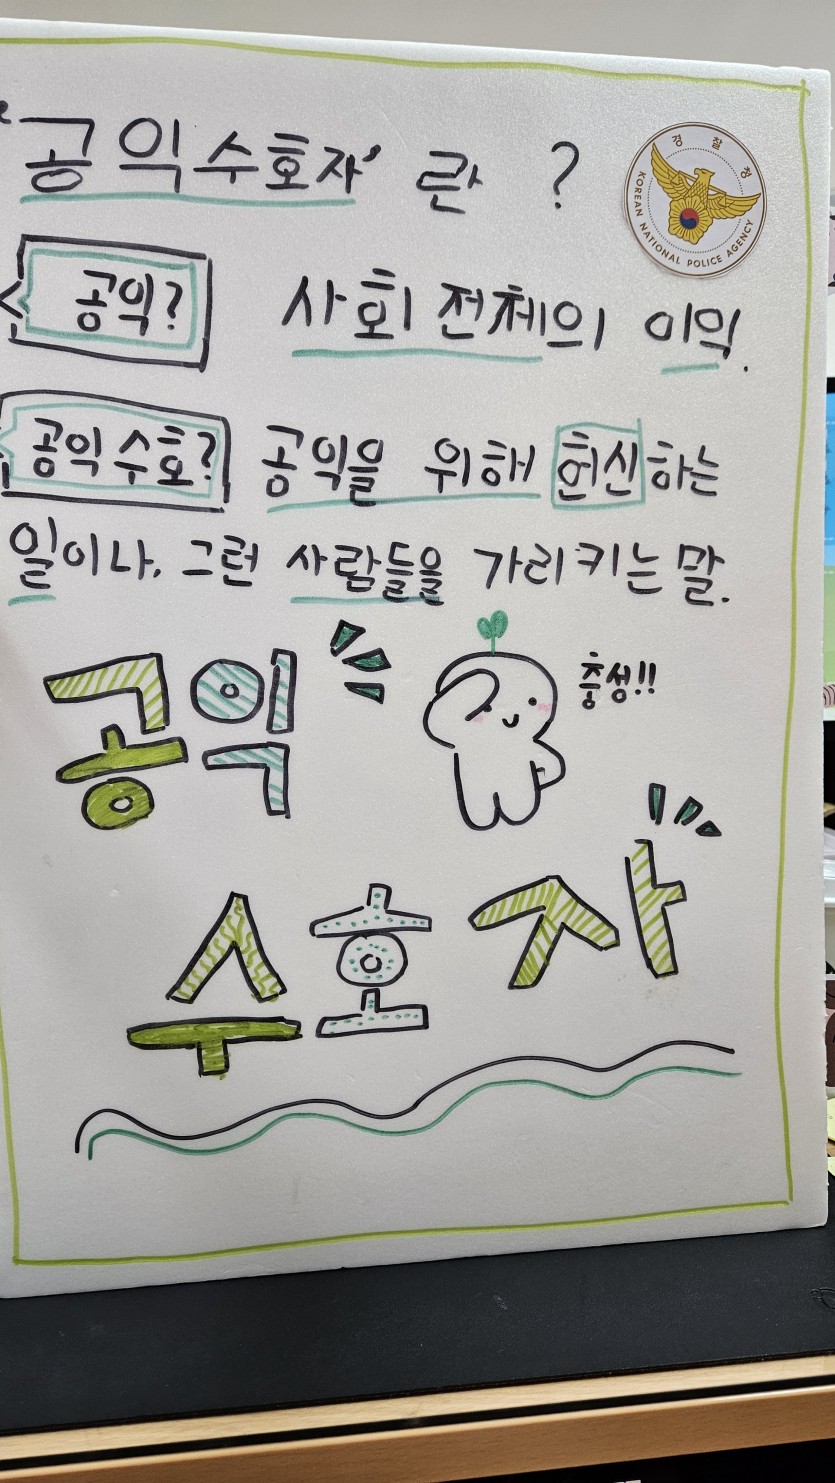 '공익수호자'란 ?
경찰청
KOREAN NATIONAL POLICE AGENCY
공익? 사회 전체의 이익.
공익수호? 공익을 위해 헌신하는
일이나, 그런 사람들을 가리키는 말.
충성!!
공익
수호자